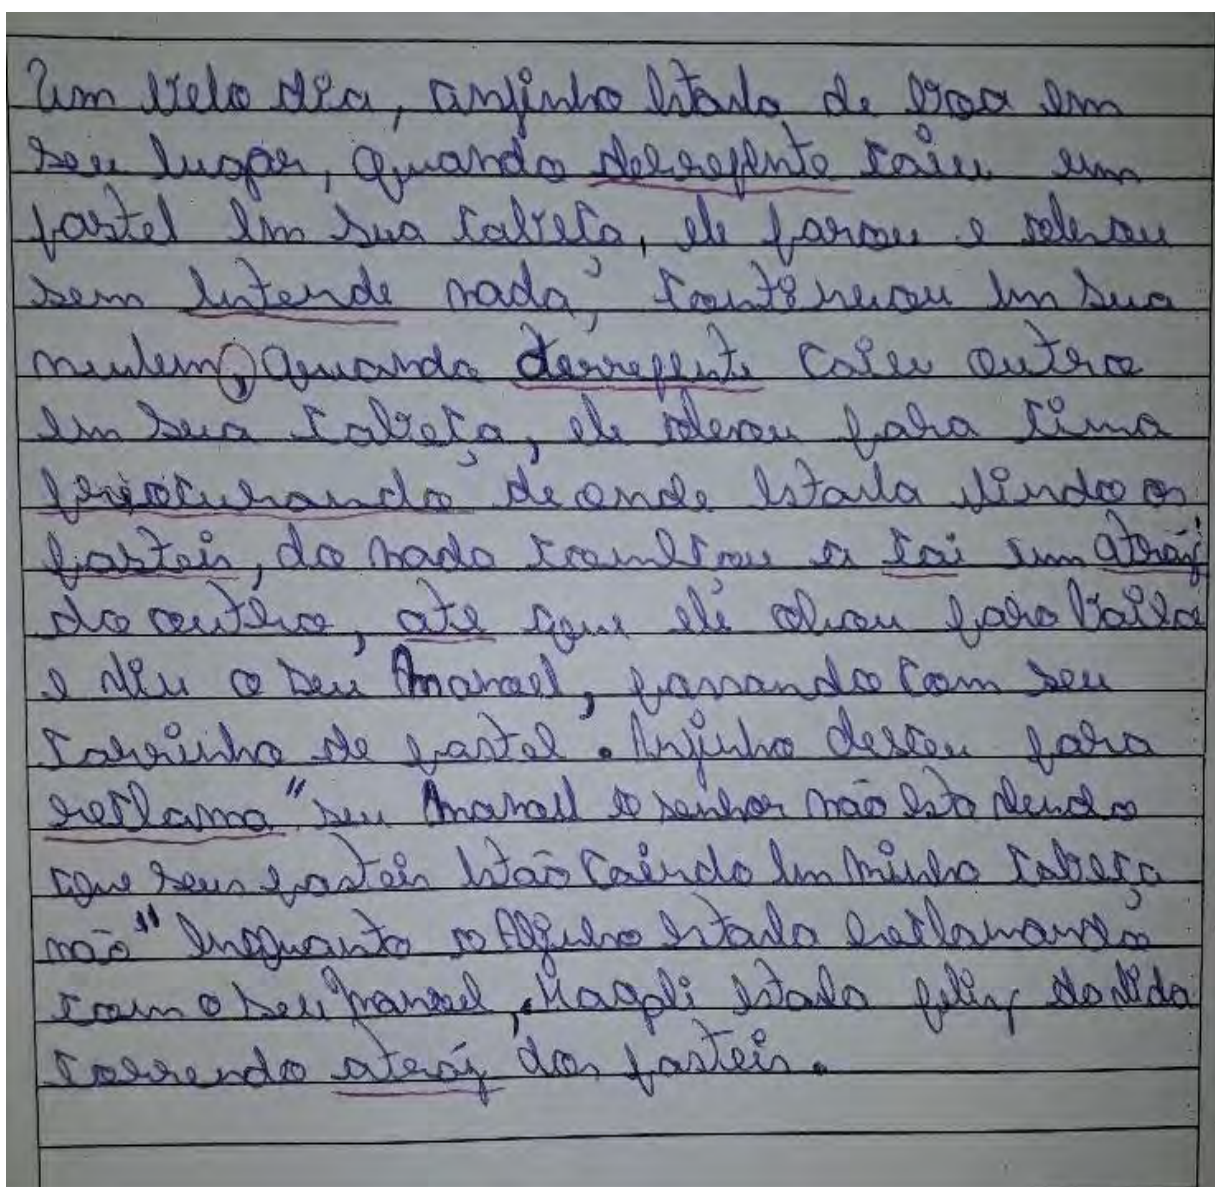 Um belo dia, anjinho estava de boa em
seu lugar, quando derrepente caiu um
pastel em sua cabeça, ele parou e olhou
sem intende nada, continuou em sua
nuvem, quando derrepente caiu outro
em sua cabeça, ele olhou para cima
procurando de onde estava vindo os
pasteis, do nada começou a cai um atráz
do outro, ate que ele olhou para baixo
e viu o seu Manoel, passando com seu
carrinho de pastel. Anjinho desceu para
reclama "seu Manoel o senhor não esta vendo
que seus pasteis estão caindo em minha cabeça
não" enquanto o Anjinho estava reclamando
com o seu Manoel, Magali estava feliz da vida
correndo atráz dos pasteis.